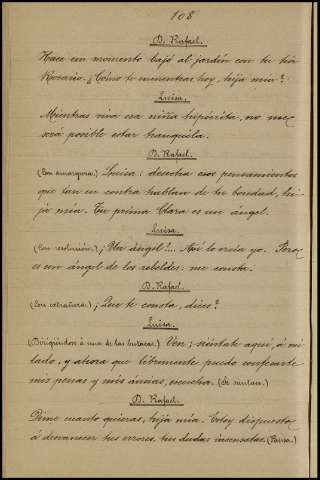 108
D. Rafael.
Hace un momento bajó al jardín con tu tía
Rosario. ¿Cómo te encuentras hoy, hija mía?
Luisa.
Mientras viva esa niña hipócrita, no me
será posible estar tranquila.
D. Rafael.
(Con amargura.) Luisa: desecha esos pensamientos
que tan en contra hablan de tu bondad, hi-
ja mía. Tu prima Clara es un ángel.
Luisa.
(Con resolución.) ¡Un ángel!... Así lo creía yo. Pero
es un ángel de los rebeldes: me consta.
D. Rafael.
(Con extrañeza.) ¿Que te consta, dices?
Luisa.
(Dirigiéndose á una de las butacas.) Ven; siéntate aquí, á mi
lado, y ahora que libremente puedo confesarte
mis penas y mis ánsias, escucha. (Se sientan.)
D. Rafael.
Dime cuanto quieras, hija mía. Estoy dispuesto
á desvanecer tus errores, tus dudas insensatas. (Pausa.)